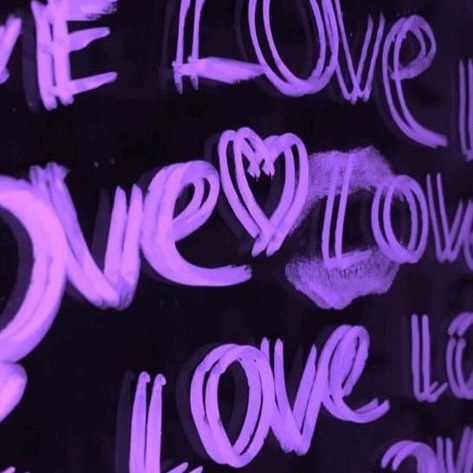 VE LOve
ove LOve
LOve LO